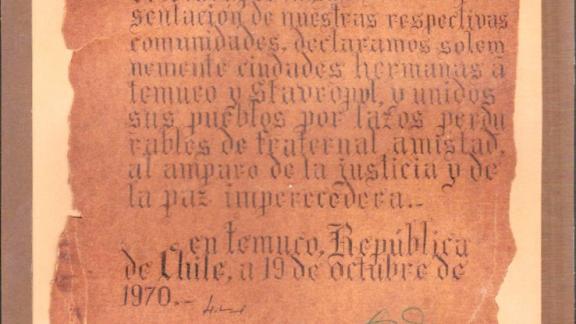 sentación de nuestras respectivas
comunidades, declaramos solem
nemente ciudades hermanas a
temuco y Stavropol, y unidos
sus pueblos por lazos perdu
rables de fraternal amistad,
al amparo de la justicia y de
la paz imperecedera.-
en temuco, República
de Chile, a 19 de octubre de
1970.-